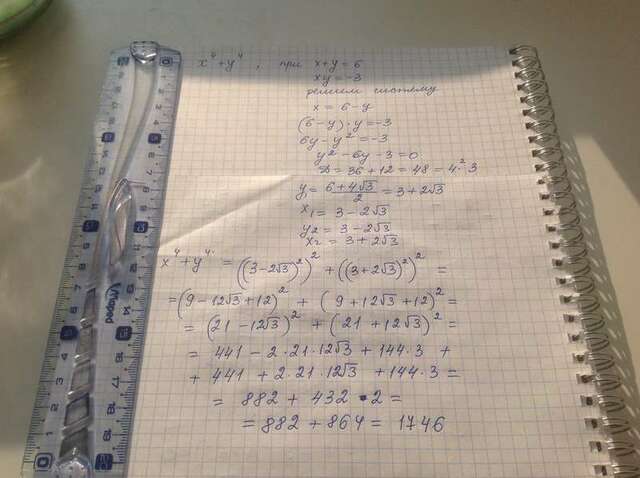 x⁴+y⁴, при x+y=6
xy=-3
решим систему
x=6-y
(6-y)·y=-3
6y-y²=-3
y²-6y-3=0
D=36+12=48=4²·3
y₁=(6+4√3)/2=3+2√3
x₁=3-2√3
y₂=3-2√3
x₂=3+2√3
x⁴+y⁴=((3-2√3)²)²+((3+2√3)²)²=
=(9-12√3+12)²+(9+12√3+12)²=
=(21-12√3)²+(21+12√3)²=
=441-2·21·12√3+144·3+
+441+2·21·12√3+144·3=
=882+432·2=
=882+864=1746